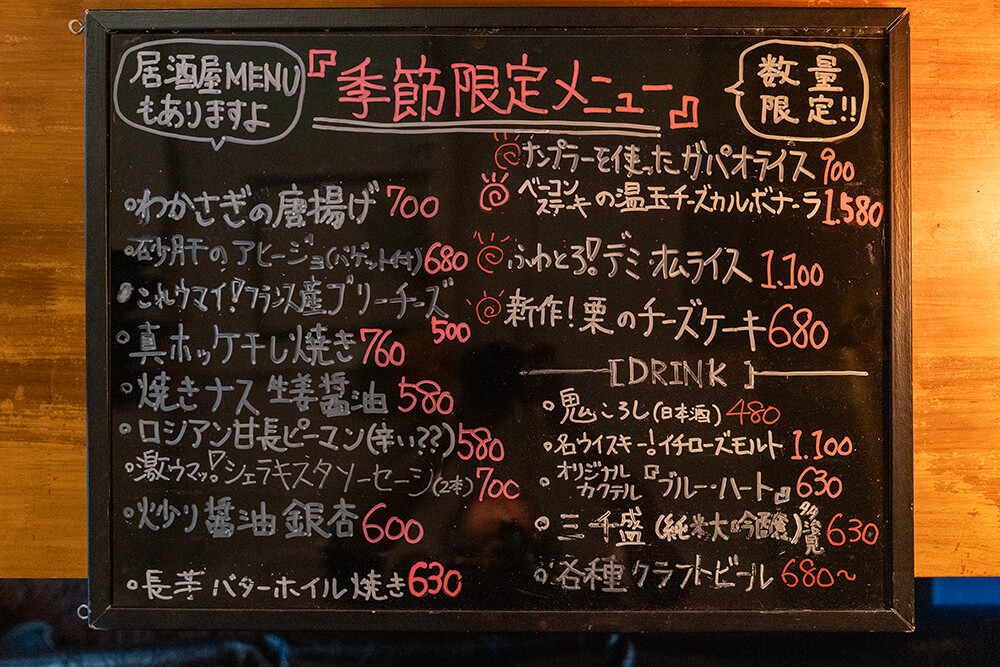 居酒屋MENU
もありますよ
『季節限定メニュー』
数量
限定!!
・わかさぎの唐揚げ 700
・砂肝のアヒージョ(バゲット付) 680
・これウマイ!フランス産ブリーチーズ
500
・真ホッケ干し焼き 760
・焼きナス 生姜醤油 580
・ロシアン甘長ピーマン(辛い??) 580
・激ウマッ!シェラキスタソーセージ(2本) 700
・炒り醤油銀杏 600
・長芋バターホイル焼き 630
ナンプラーを使ったガパオライス 900
ベーコン
ステーキの温玉チーズカルボナーラ 1.580
ふわとろ!デミオムライス 1.100
新作!栗のチーズケーキ 680
[DRINK]
・鬼ころし(日本酒) 480
・名ウイスキー!イチローズモルト 1.100
・オリジナル
カクテル『ブルー・ハート』 630
・三千盛(純米大吟醸) 630
・各種クラフトビール 680~